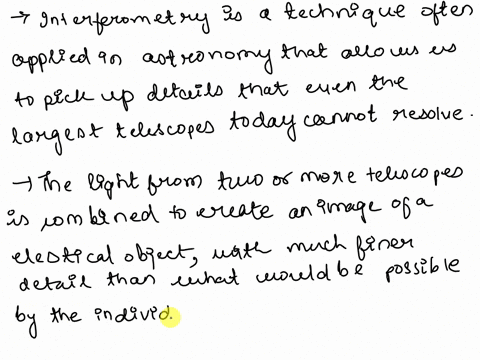 → Interferometry is a technique often
applied in astronomy that allows us
to pick up details that even the
largest telescopes today cannot resolve.
→ The light from two or more telescopes
is combined to create an image of a
elestical object, with much finer
detail than what would be possible
by the individ